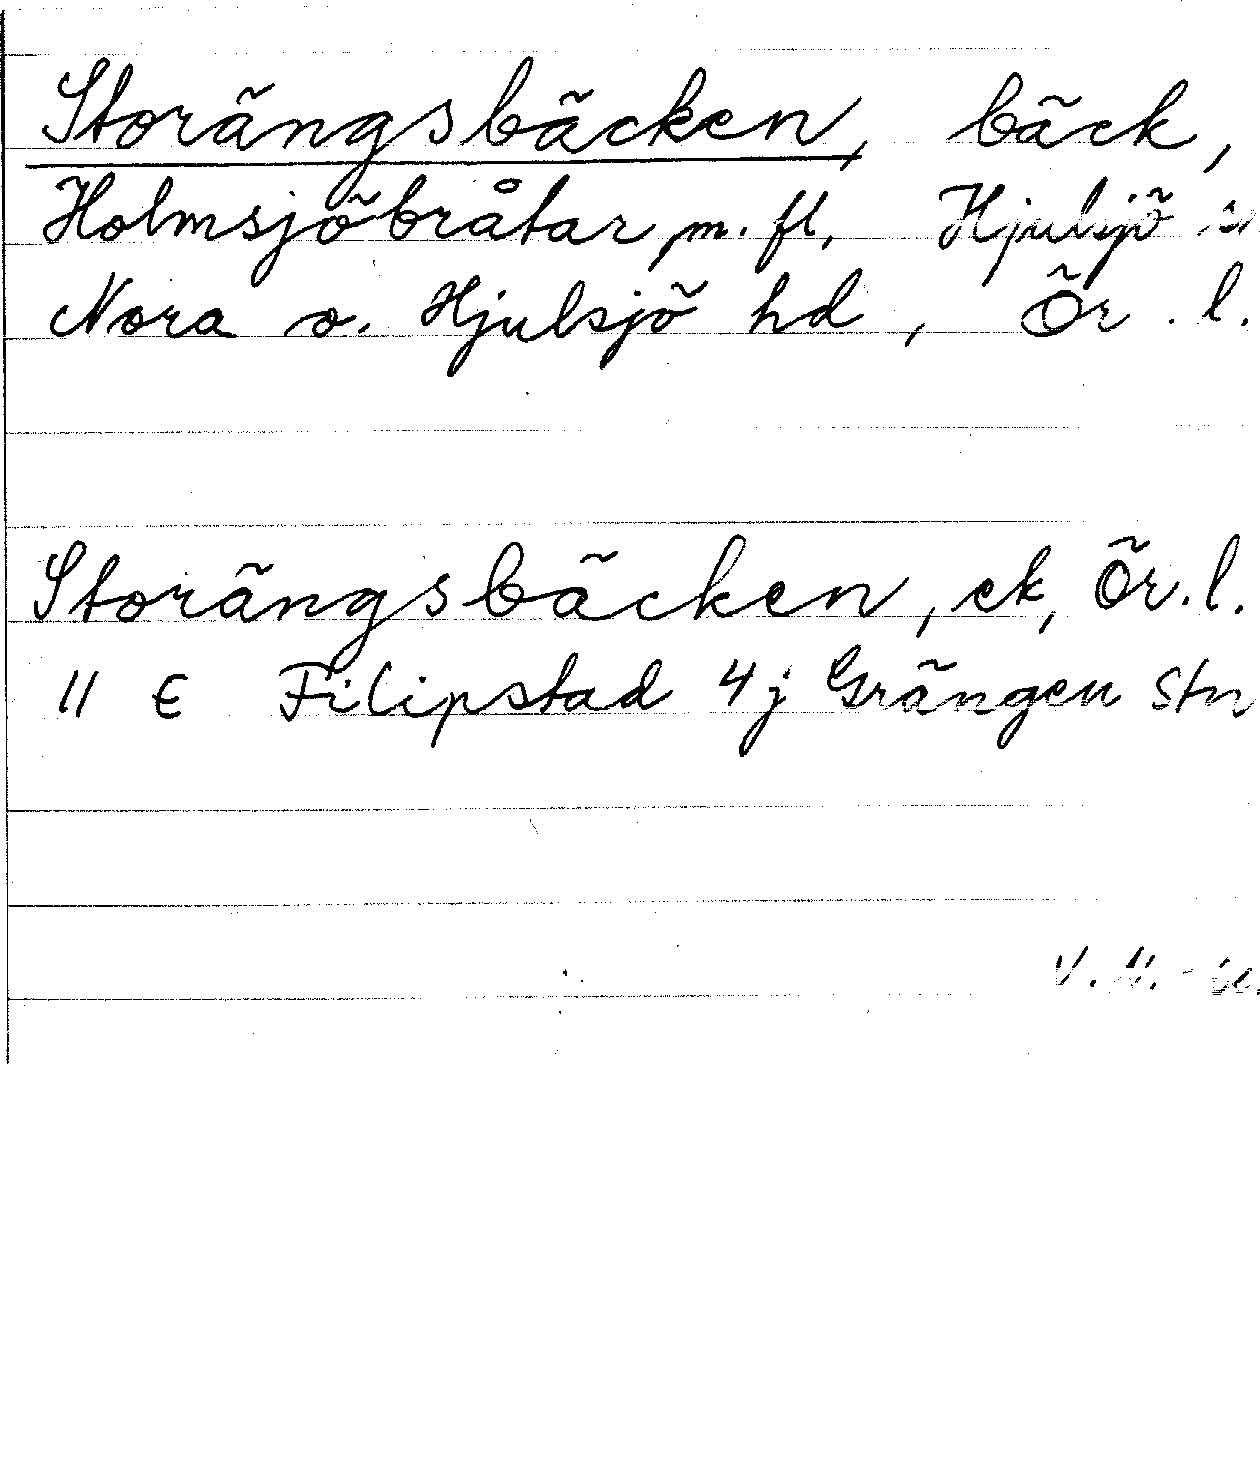 Storängsbäcken, bäck,
Holmsjöbråtar m. fl. Hjulsjö
Nora o. Hjulsjö hd, Ör. l.
Storängsbäcken, ek, Ör. l.
11 € Filipstad 4 j Grängen stn